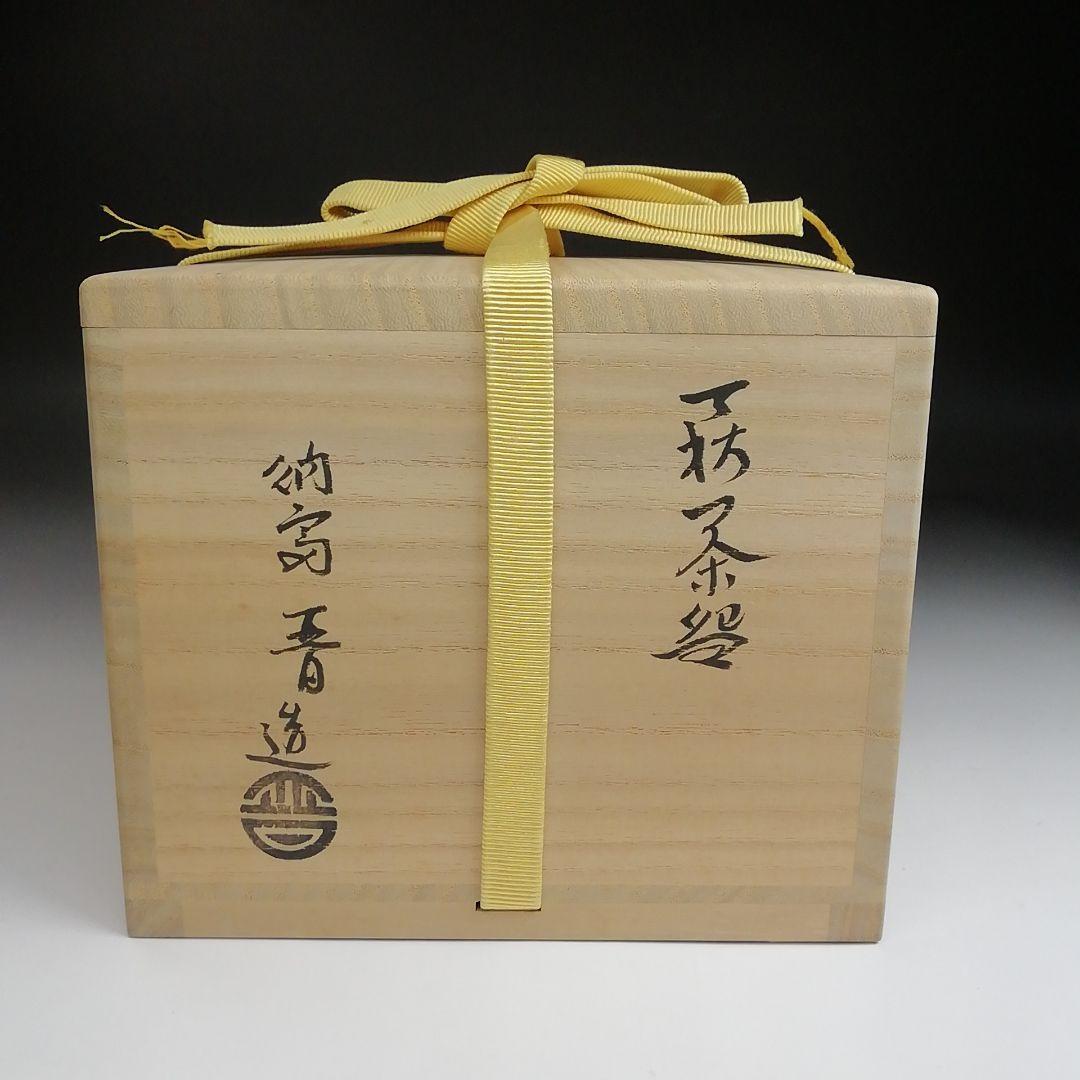 萩茶碗
納富晋造